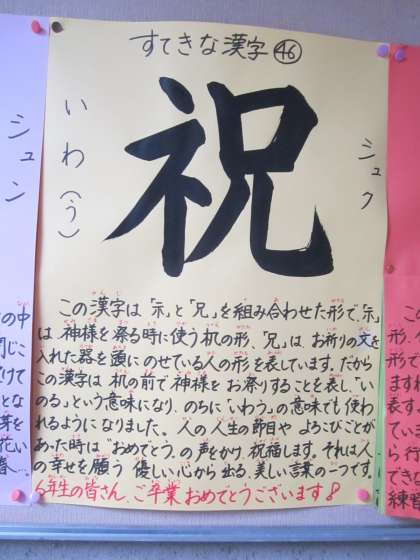 すてきな漢字㊻
祝
いわ(う)
シュク
この漢字は「示」と「兄」を組み合わせた形で、「示」
は神様を祭る時に使う机の形、「兄」は、お祈りの文を
入れた器を頭にのせている人の形を表しています。だから
この漢字は机の前で神様をお祭りすることを表し、「い
のる」という意味になり、のちに「いわう」の意味でも使わ
れるようになりました。人の人生の節目やよろこびごとが
あった時は〝おめでとう〟の声をかけ、祝福します。それは人
の幸せを願う優しい心から出る、美しい言葉の一つです。
6年生の皆さん、ご卒業おめでとうございます
シュン